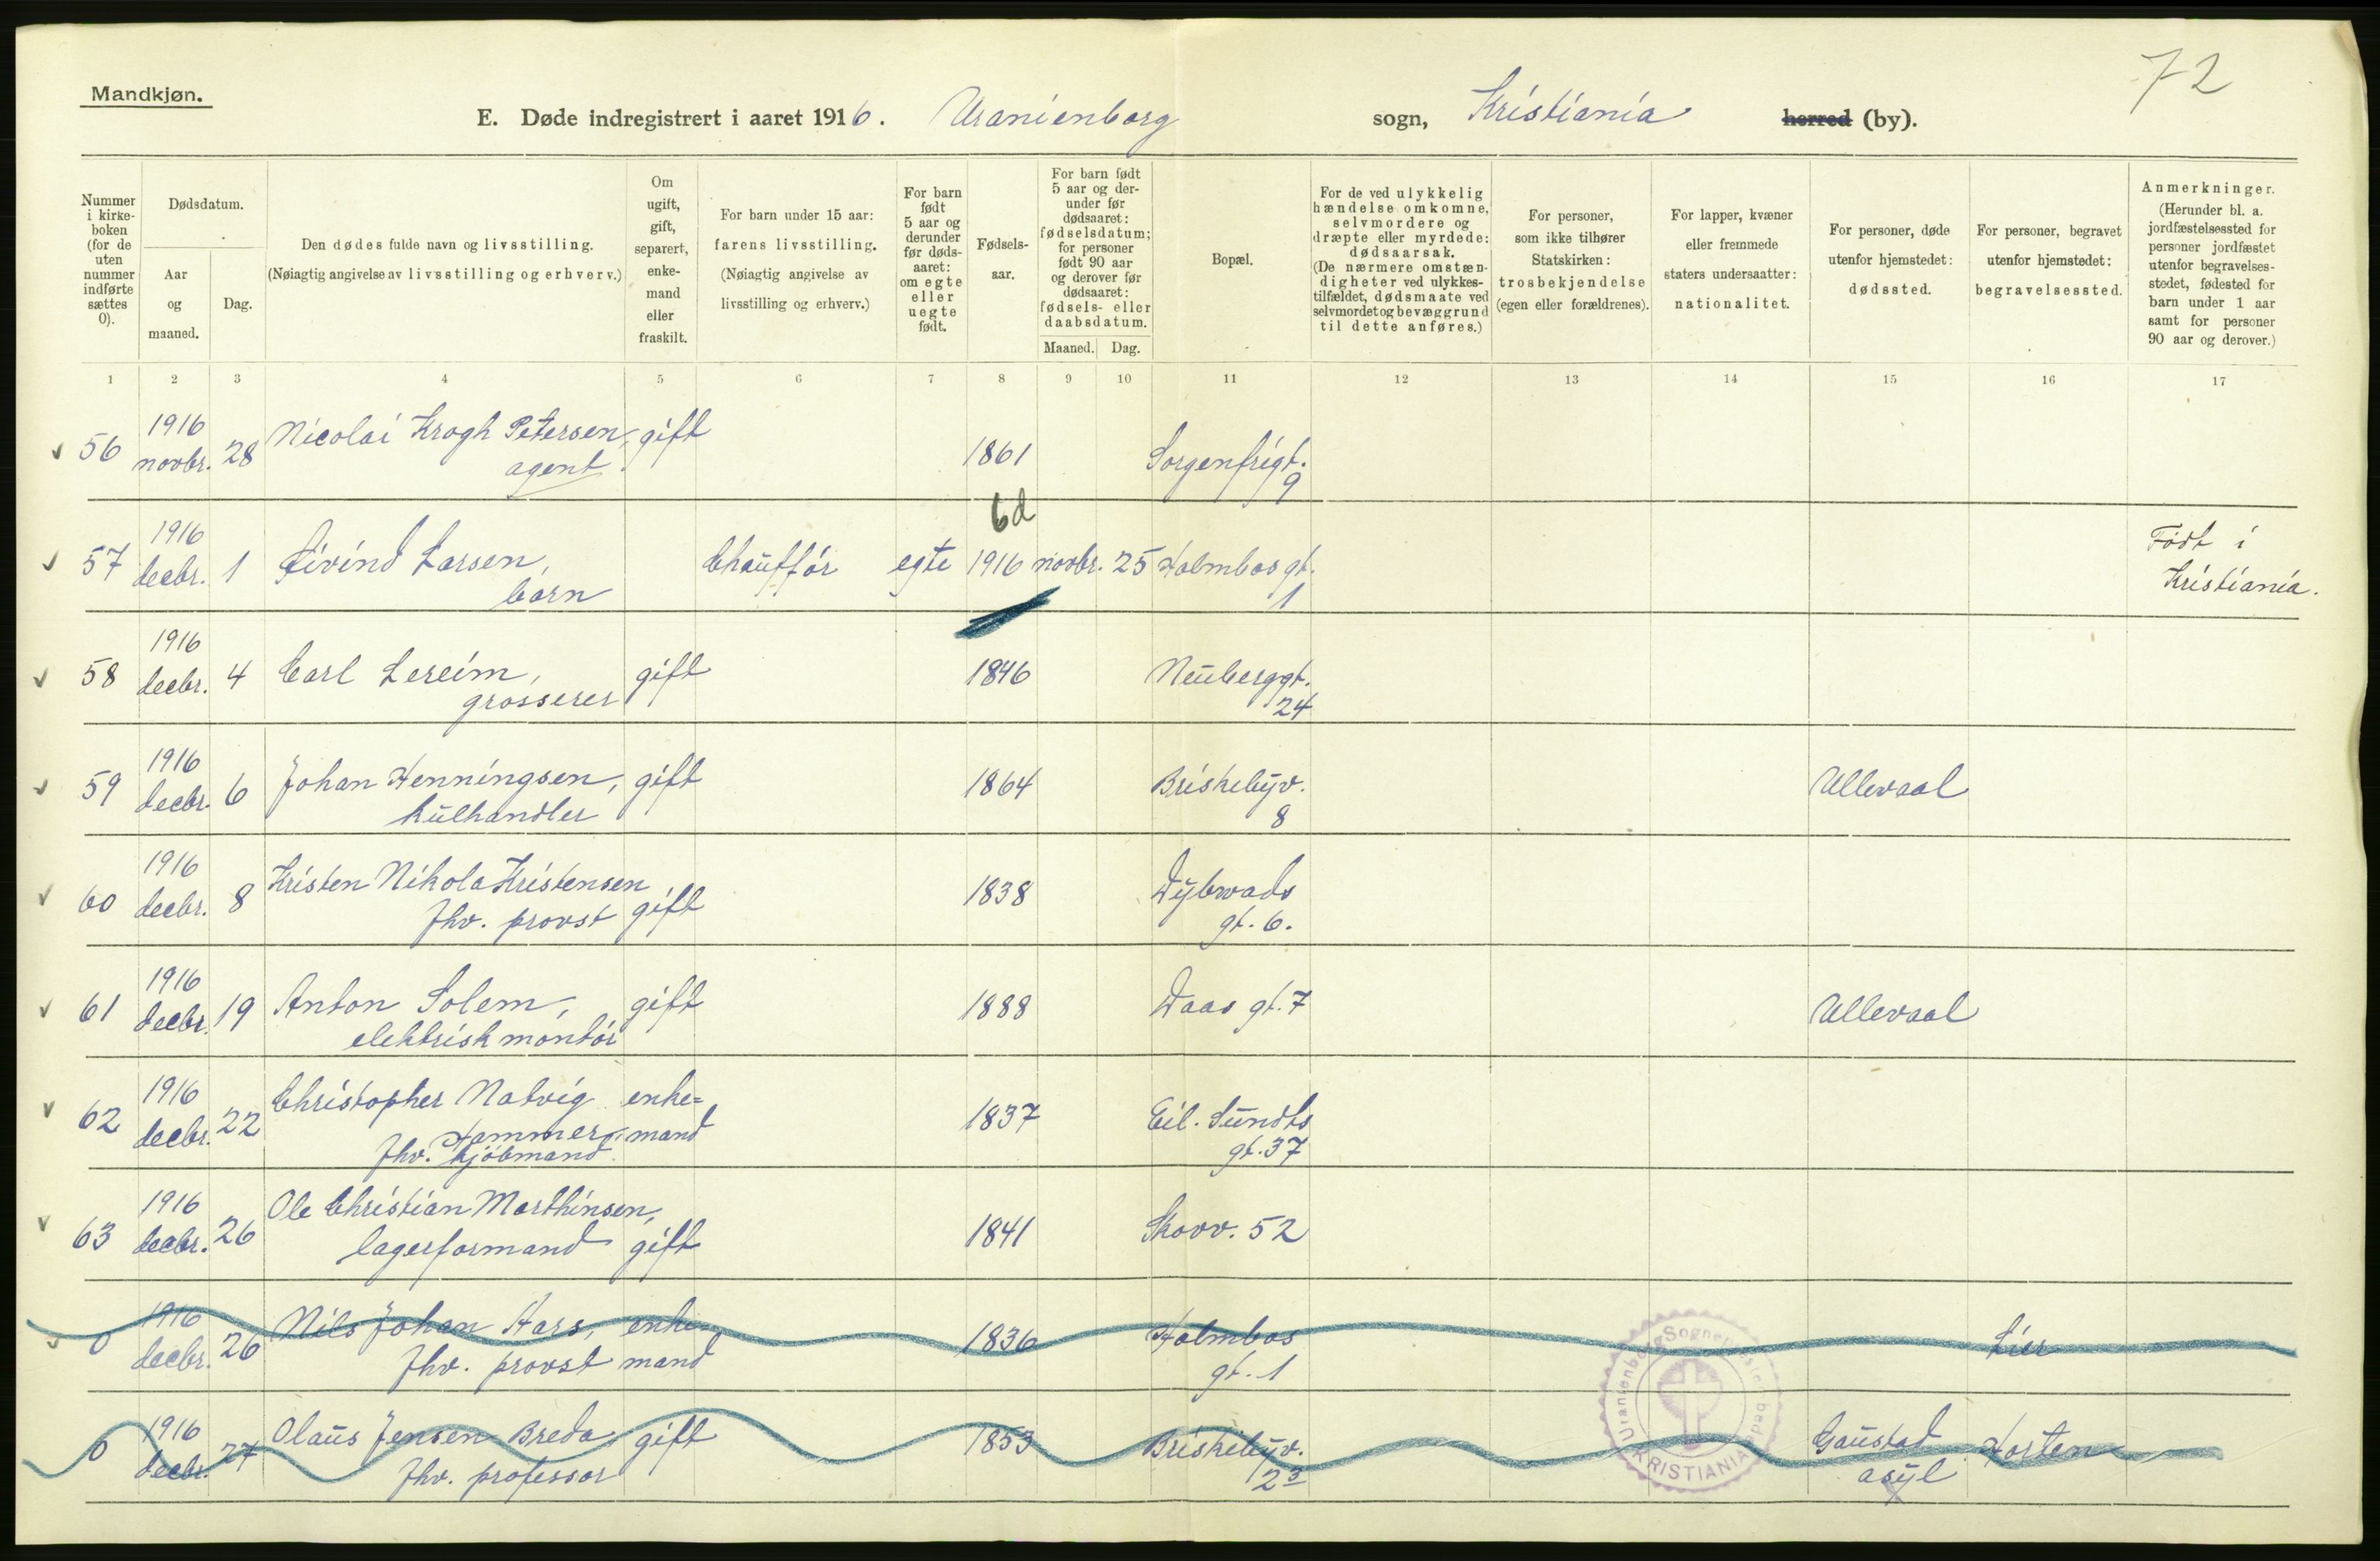 72
Mandkjøn.
E. Døde indregistrert i aaret 1916. Uranienborg sogn, Kristiania herred (by).
Nummer i kirke-boken (for de uten nummer indførte sættes 0).
Dødsdatum.
Aar og maaned.
Dag.
Den dødes fulde navn og livsstilling.
(Nøiagtig angivelse av livsstilling og erhverv.)
Om ugift, gift, separert, enke-mand eller fraskilt.
For barn under 15 aar: farens livsstilling. (Nøiagtig angivelse av livsstilling og erhverv.)
For barn født 5 aar og derunder før døds-aaret: om egte eller uegte født.
Fødsels-aar.
For barn født 5 aar og der-under før dødsaaret: fødselsdatum; for personer født 90 aar og derover før dødsaaret: fødsels- eller daabsdatum.
Maaned. Dag.
Bopæl.
For de ved ulykkelig hændelse omkomne, selvmordere og dræpte eller myrdede: dødsaarsak. (De nærmere omstæn-digheter ved ulykkes-tilfældet, dødsmaate ved selvmordet og bevæggrund til dette anføres.)
For personer, som ikke tilhører Statskirken: trosbekjendelse (egen eller forældrenes).
For lapper, kvæner eller fremmede staters undersaatter: nationalitet.
For personer, døde utenfor hjemstedet: dødssted.
For personer, begravet utenfor hjemstedet: begravelsessted.
Anmerkninger. (Herunder bl. a. jordfæstelsessted for personer jordfæstet utenfor begravelses-stedet, fødested for barn under 1 aar samt for personer 90 aar og derover.)
1 2 3 4 5 6 7 8 9 10 11 12 13 14 15 16 17
56 1916 novbr. 28 Nicolai Krogh Petersen, agent gift 1861 Sorgenfrigt. 9
6d
57 1916 decbr. 1 Eivind Larsen, barn Chauffør egte 1916 novbr. 25 Holmbos gt. 1 Født i Kristiania.
58 1916 decbr. 4 Carl Lereim, grosserer gift 1846 Neuberggt. 24
59 1916 decbr. 6 Johan Henningsen, kulhandler gift 1864 Briskebyv. 8 Ullevaal
60 1916 decbr. 8 Kristen Nikolai Kristensen fhv. provst gift 1838 Dybwads gt. 6.
61 1916 decbr. 19 Anton Solem, elektrisk montør gift 1888 Daas gt. 7 Ullevaal
62 1916 decbr. 22 Christopher Natvig Hammer, fhv. kjøbmand. enke=mand 1837 Eil. Sundts gt. 37
63 1916 decbr. 26 Ole Christian Marthinsen, lagerformand gift 1841 Skovv. 52
0 1916 decbr. 26 Nils Johan Aars, fhv. provst enke=mand 1836 Holmbos gt. 1 Lier
0 1916 decbr. 27 Olaus Jensen Breda, fhv. professor gift 1853 Briskebyv. 23 Gaustad asyl Horten
Uranienborg Sogneprestembede KRISTIANIA